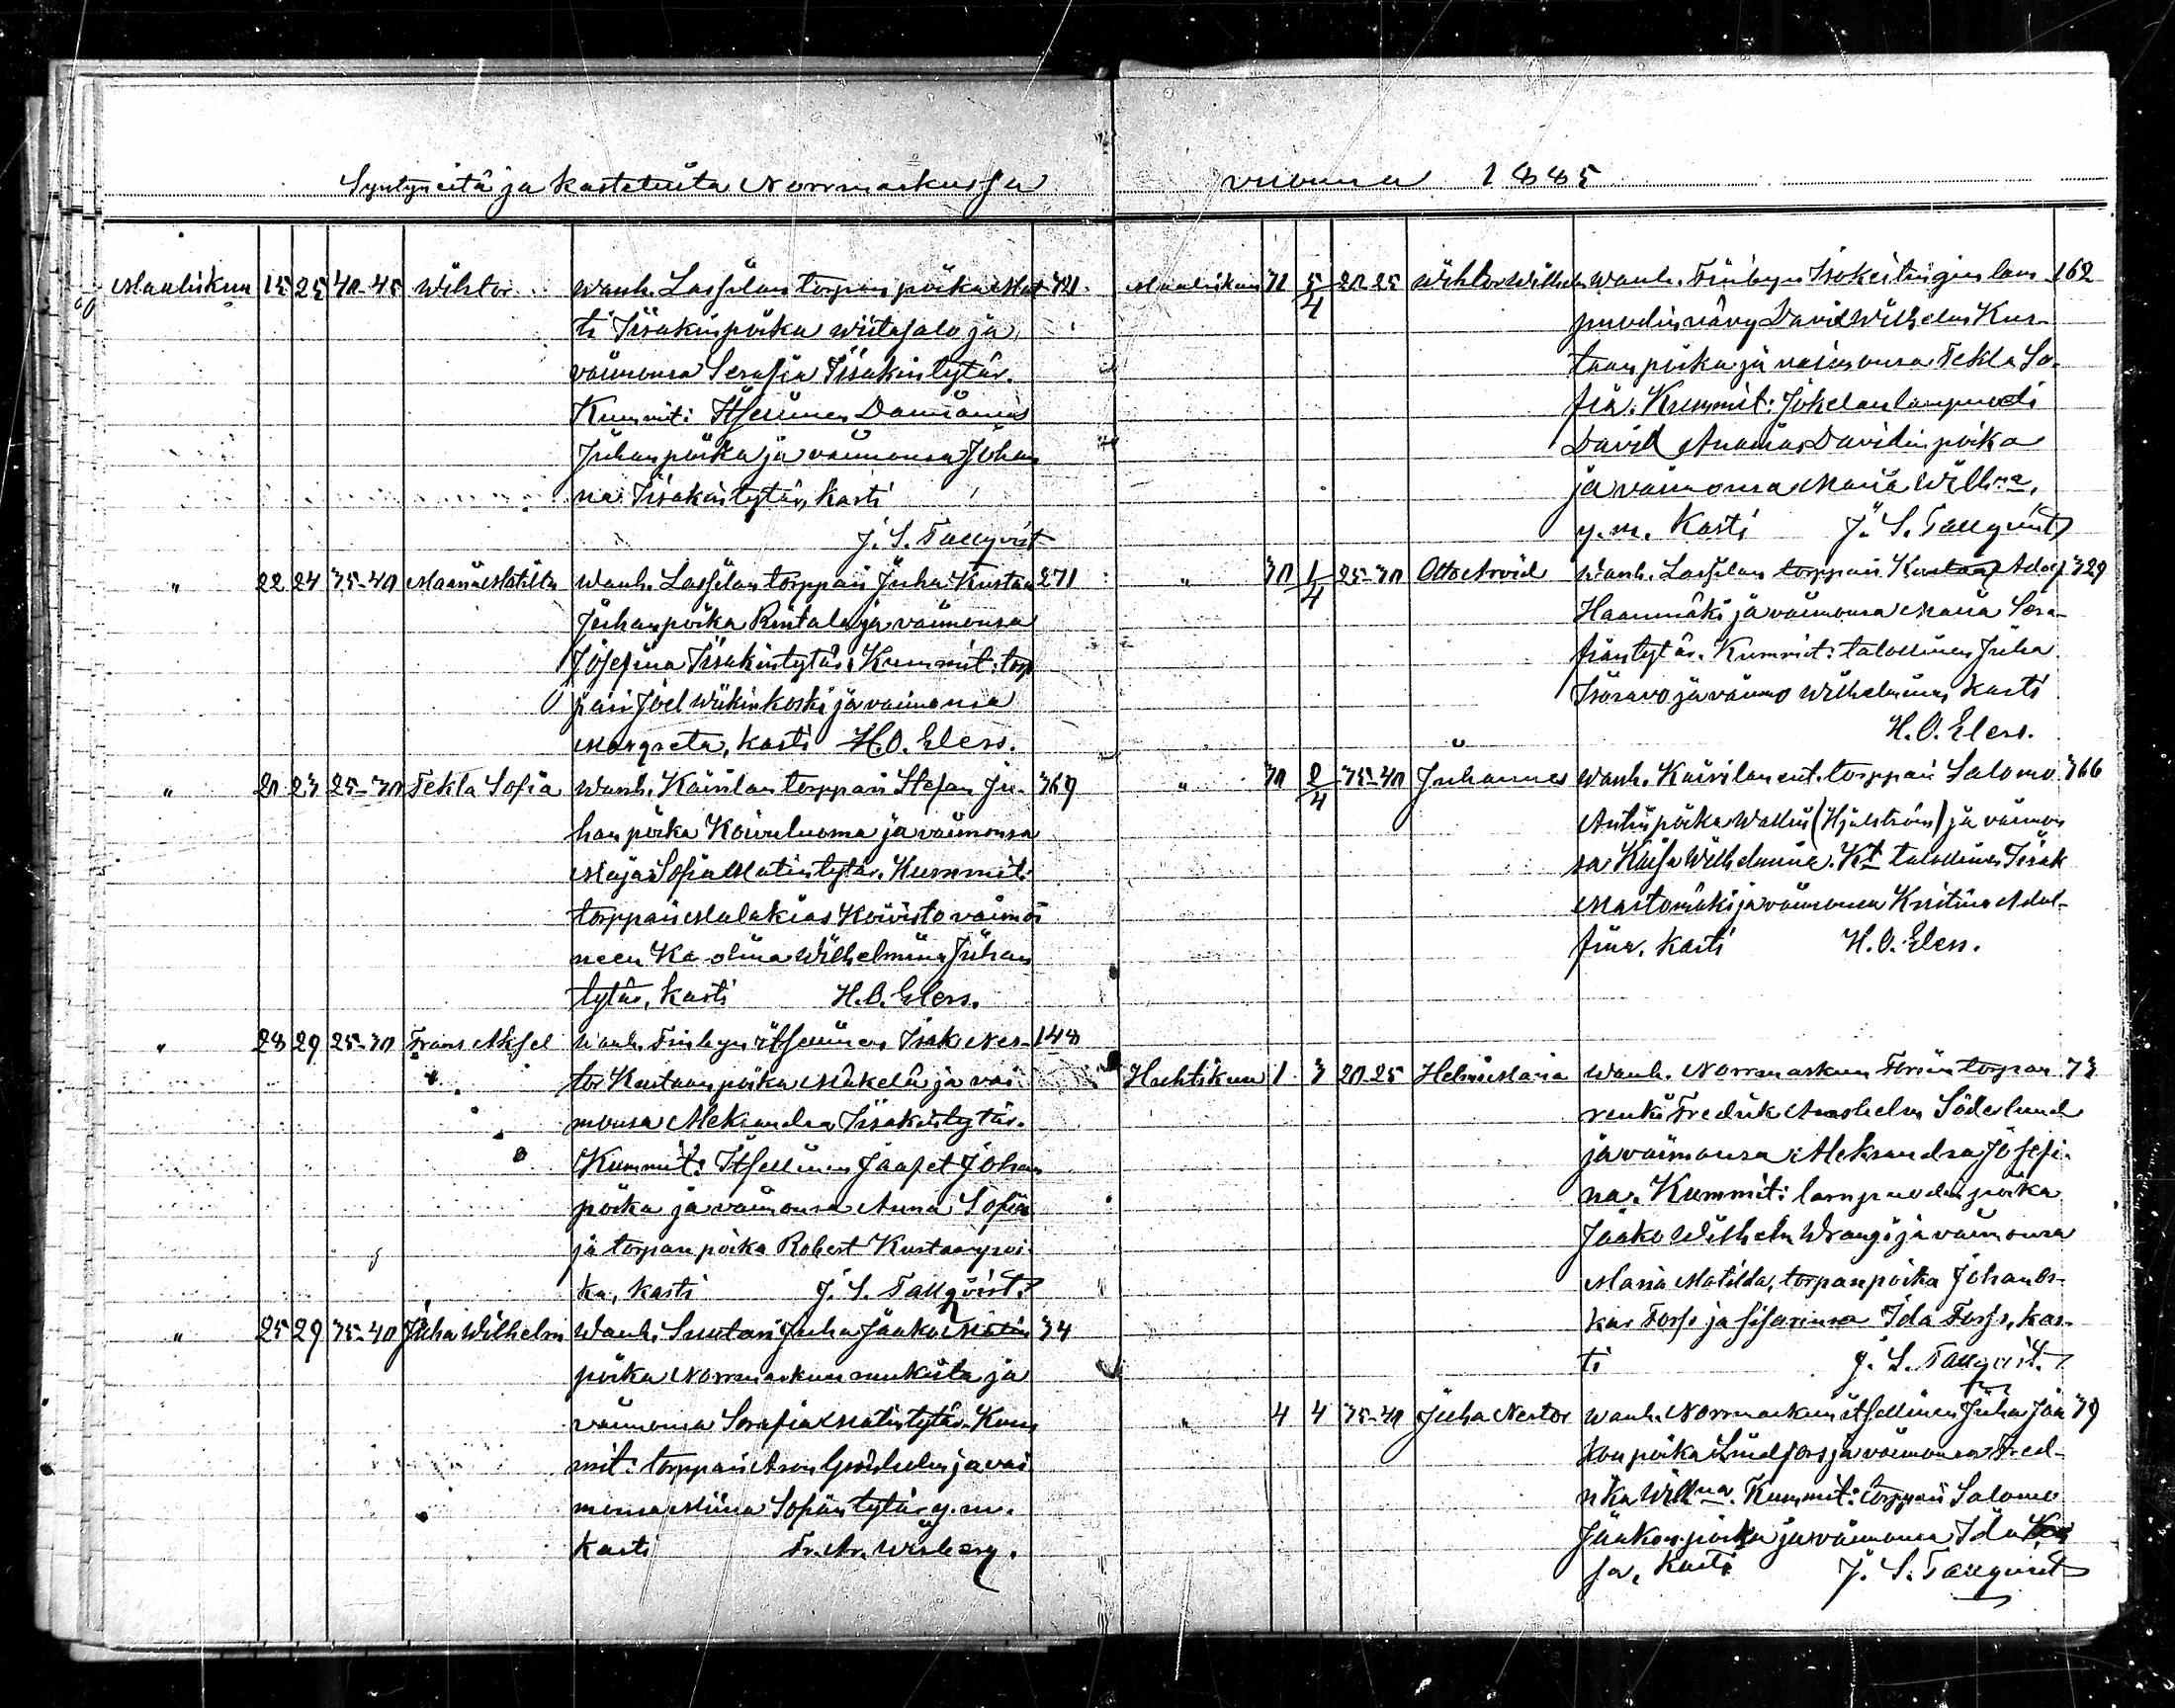 Syntyneitä ja kastetuita Norrmarkussa
Maaliskun 15 25 40-45 Wihtor Wanh. Lassilan torpan poika Mat-
ti Iisakinpoika Wiitasalo ja
vaimonsa Serafia Iisakintytär.
Kummit: Itsellinen
Juhanpoika ja vaimonsa Johan
na Iisakintytär, Kasti
J. S. Tallqvist
" 22 24 35-40 Maria Matilta Wanh. Lassilan torppari Juha Kustaa 271
Juhanpoika Rintala ja vaimonsa
Josefina Iisakintytär. Kummit: torp
pari Joel Wiikinkoski ja vaimonsa
Margreta, Kasti H. O. Elers.
" 20 23 25-30 Tekla Sofia Wanh. Kairilan torppari Stefan Ju- 369
hanpoika Koivuluoma ja vaimonsa
Maja Sofia Matintytär. Kummit:
torppari Malakias Koivisto vaimoi
neen Karolina Wilhelmina Juhan
tytär, Kasti H. O. Elers.
" 28 29 25-30 Frans Aksel Wanh. Finbyn itsellinen Isak Nes- 148
tor Kustaanpoika Mäkelä ja vai
monsa Aleksandra Iisakintytär.
Kummit: Itsellinen Jaafet Johan
poika ja vaimonsa Anna Sofia
ja torpan poika Robert Kustaanpoi
ka, Kasti J. S. Tallqvist
" 25 29 35-40 Juha Wilhelm Wanh. Suutari Juha Jaakko Matin 34
poika Norrmarkun ruukista ja
vaimonsa Serafia Matintytär. Kum
mit: torppari Aron ja vai
monsa Miina Sofiantytär y. m.
Kasti Fr. Ar. Wisberg.
vuonna 1885
Maaliskun 31 5/4 20-25 Wihtor Wilhelm Wanh. Finbyn Isokeitingin lam 162
puodin vävy David Wilhelm Kus-
taanpoika ja vaimonsa Tekla So-
fia. Kummit: Jokelan lampuodi
David Ananias Davidinpoika
ja vaimonsa Maria Wilh:na,
y. m. Kasti J. S. Tallqvist
" 30 1/4 25-30 Otto Arvid Wanh. Lassilan torppari Kustaa Adolf 329
Haanmäki ja vaimonsa Maria Sera-
fiantytär. Kummit: talollinen Juha
Isosavo ja vaimo Wilhelmina, Kasti
H. O. Elers.
" 30 2/4 35-40 Juhannes Wanh. Kairilan ent. torppari Salomo 366
Antinpoika Wallin (Hjelström) ja vaimon
sa Kaisa Wilhelmina. Kt talollinen Iisak
Mastomäki ja vaimonsa Kristina Adol-
fina. Kasti H. O. Elers.
Huhtikun 1 3 20-25 Helmi Maria Wanh. Norrmarkun Forsin torpan 73
renki Fredrik Anshelm Söderlund
ja vaimonsa Aleksandra Josefi-
na. Kummit: lampuodin poika
Jaako Wilhelm Wrangi ja vaimonsa
Maria Matilda, torpanpoika Johan Os-
kar Forss ja sisarinsa Ida Forss, Kas-
ti J. S. Tallqvist.
" 4 4 35-40 Juha Nestor Wanh. Norrmarkun itsellinen Juha Jaa 39
konpoika Lindfors ja vaimonsa Fred-
rika Wilh:na. Kummit: torppari Salomo
Jaakonpoika ja vaimonsa Ida
sa, Kasti J. S. Tallqvist